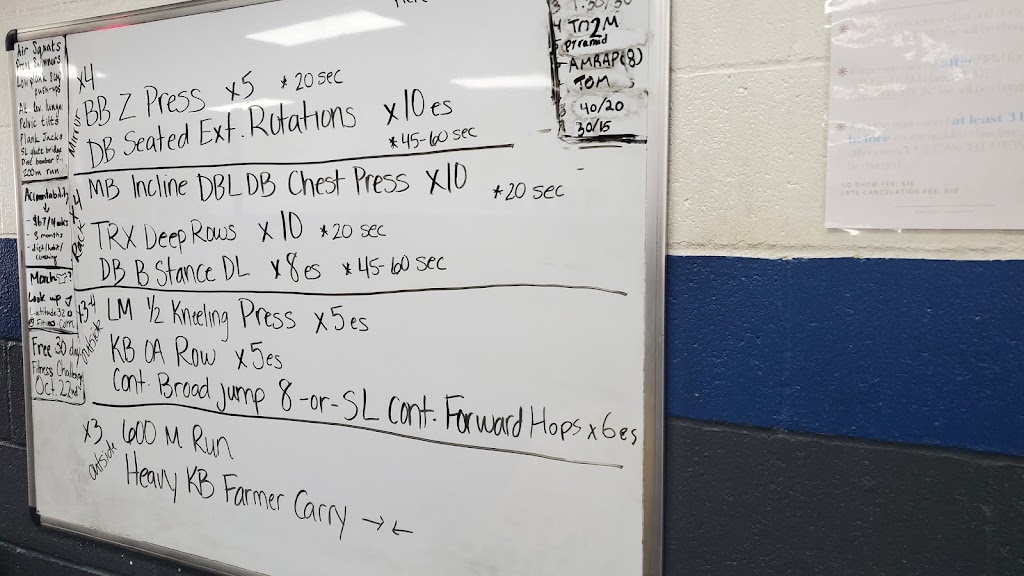 Air Squats
Low plank
push-ups
Alt. lev. lunge
Pelvic tilts
Plank Jacks
SL glute bridge
Dive bomber P.
200m run
Accountability
- 3 months
Look up
Latitude 32
@ Fitness Com
Free 30 day
Fitness Challenge
Oct. 22nd
x4
Mirror
BB Z Press x5 * 20 sec
DB Seated Ext. Rotations x10 es
* 45-60 sec
x4
Rack
MB Incline DBL DB Chest Press x10 * 20 sec
TRX Deep Rows x10 * 20 sec
DB B Stance DL x8 es * 45-60 sec
x3-4
outside
LM 1/2 Kneeling Press x5 es
KB OA Row x5 es
Cont. Broad jump 8 -or- SL Cont. Forward Hops x6 es
x3
outside
600 M Run
Heavy KB Farmer Carry → ←
2
Pyramid
AMRAP(8)
TOM
40/20
30/15
after
at least 3
before
NO SHOW FEE: $10
LATE CANCELATION FEE: $10